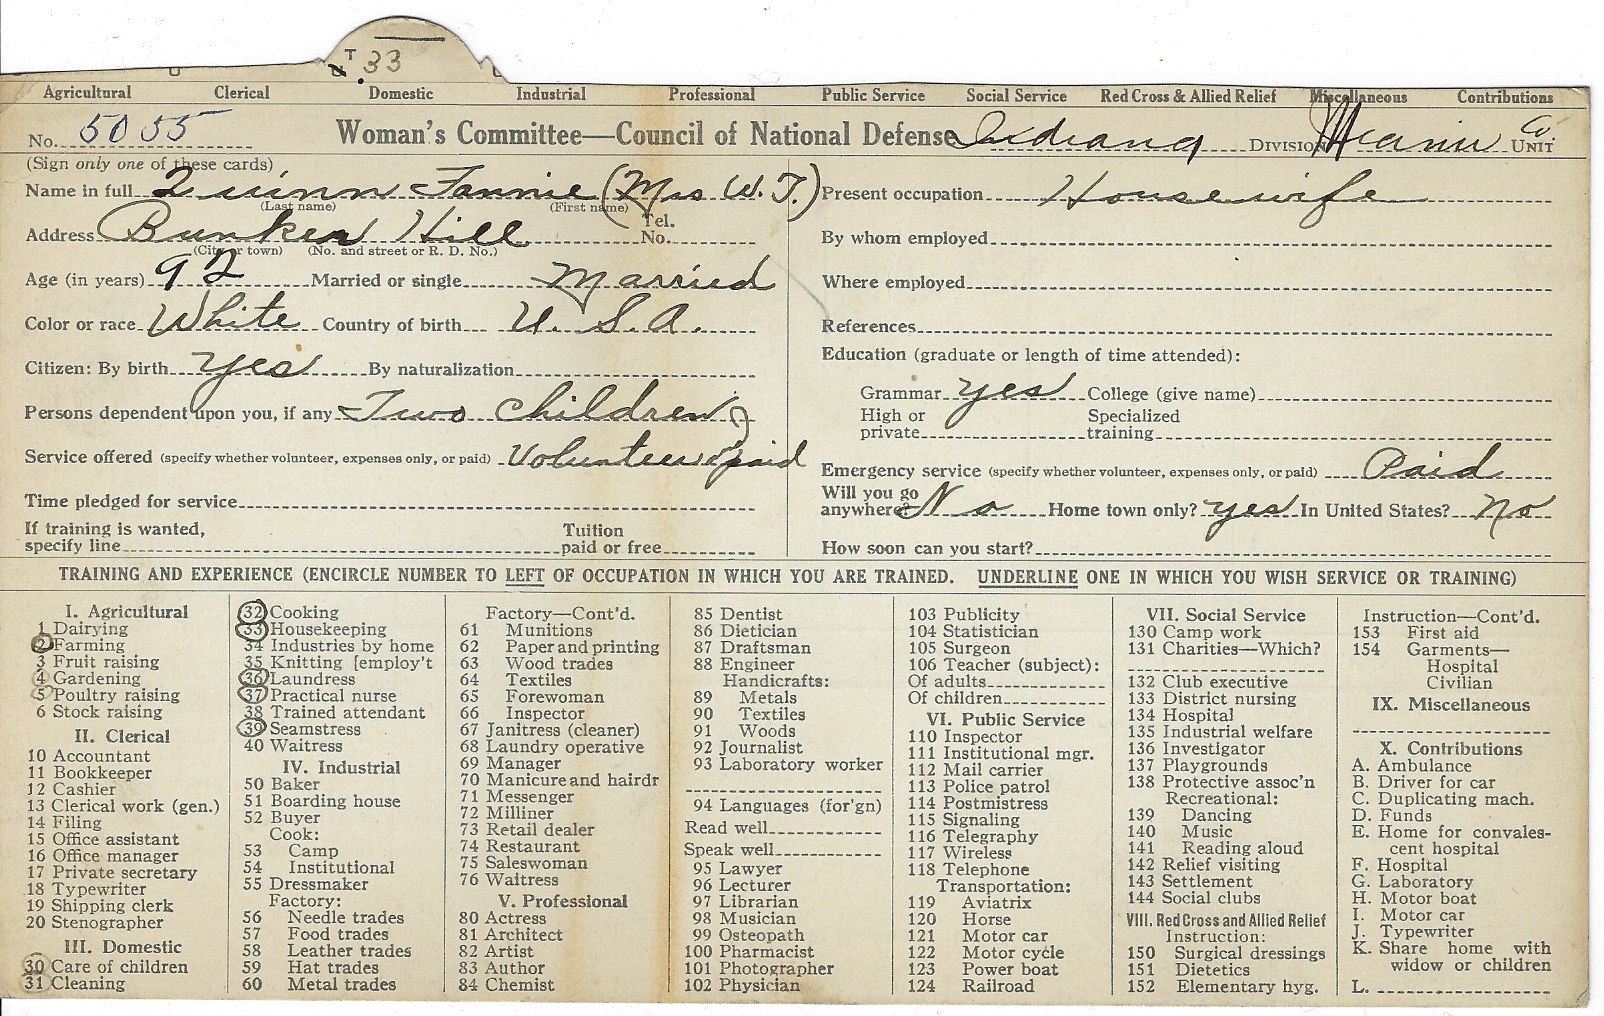 T 33
Agricultural Clerical Domestic Industrial Professional Public Service Social Service Red Cross & Allied Relief Miscellaneous Contributions
No. 5055 Woman's Committee—Council of National Defense Indiana DIVISION Miami Co. UNIT
(Sign only one of these cards)
Name in full Quinn Fannie (Mrs W. T.)
(Last name) (First name)
Address Bunker Hill Tel. No.
(City or town) (No. and street or R. D. No.)
Age (in years) 92 Married or single Married
Color or race White Country of birth U. S. A.
Citizen: By birth yes By naturalization
Persons dependent upon you, if any Two children
Service offered (specify whether volunteer, expenses only, or paid) Volunteer & paid
Time pledged for service
If training is wanted, specify line Tuition paid or free
Present occupation Housewife
By whom employed
Where employed
References
Education (graduate or length of time attended):
Grammar yes College (give name)
High or private Specialized training
Emergency service (specify whether volunteer, expenses only, or paid) Paid
Will you go anywhere? No Home town only? yes In United States? No
How soon can you start?
TRAINING AND EXPERIENCE (ENCIRCLE NUMBER TO LEFT OF OCCUPATION IN WHICH YOU ARE TRAINED. UNDERLINE ONE IN WHICH YOU WISH SERVICE OR TRAINING)
I. Agricultural
1 Dairying
2 Farming
3 Fruit raising
4 Gardening
5 Poultry raising
6 Stock raising
II. Clerical
10 Accountant
11 Bookkeeper
12 Cashier
13 Clerical work (gen.)
14 Filing
15 Office assistant
16 Office manager
17 Private secretary
18 Typewriter
19 Shipping clerk
20 Stenographer
III. Domestic
30 Care of children
31 Cleaning
32 Cooking
33 Housekeeping
34 Industries by home
35 Knitting [employ't
36 Laundress
37 Practical nurse
38 Trained attendant
39 Seamstress
40 Waitress
IV. Industrial
50 Baker
51 Boarding house
52 Buyer
Cook:
53 Camp
54 Institutional
55 Dressmaker
Factory:
56 Needle trades
57 Food trades
58 Leather trades
59 Hat trades
60 Metal trades
Factory—Cont'd.
61 Munitions
62 Paper and printing
63 Wood trades
64 Textiles
65 Forewoman
66 Inspector
67 Janitress (cleaner)
68 Laundry operative
69 Manager
70 Manicure and hairdr
71 Messenger
72 Milliner
73 Retail dealer
74 Restaurant
75 Saleswoman
76 Waitress
V. Professional
80 Actress
81 Architect
82 Artist
83 Author
84 Chemist
85 Dentist
86 Dietician
87 Draftsman
88 Engineer
Handicrafts:
89 Metals
90 Textiles
91 Woods
92 Journalist
93 Laboratory worker
94 Languages (for'gn)
Read well
Speak well
95 Lawyer
96 Lecturer
97 Librarian
98 Musician
99 Osteopath
100 Pharmacist
101 Photographer
102 Physician
103 Publicity
104 Statistician
105 Surgeon
106 Teacher (subject):
Of adults
Of children
VI. Public Service
110 Inspector
111 Institutional mgr.
112 Mail carrier
113 Police patrol
114 Postmistress
115 Signaling
116 Telegraphy
117 Wireless
118 Telephone
Transportation:
119 Aviatrix
120 Horse
121 Motor car
122 Motor cycle
123 Power boat
124 Railroad
VII. Social Service
130 Camp work
131 Charities—Which?
132 Club executive
133 District nursing
134 Hospital
135 Industrial welfare
136 Investigator
137 Playgrounds
138 Protective assoc'n
Recreational:
139 Dancing
140 Music
141 Reading aloud
142 Relief visiting
143 Settlement
144 Social clubs
VIII. Red Cross and Allied Relief
Instruction:
150 Surgical dressings
151 Dietetics
152 Elementary hyg.
Instruction—Cont'd.
153 First aid
154 Garments—
Hospital
Civilian
IX. Miscellaneous
X. Contributions
A. Ambulance
B. Driver for car
C. Duplicating mach.
D. Funds
E. Home for convales-
cent hospital
F. Hospital
G. Laboratory
H. Motor boat
I. Motor car
J. Typewriter
K. Share home with
widow or children
L.